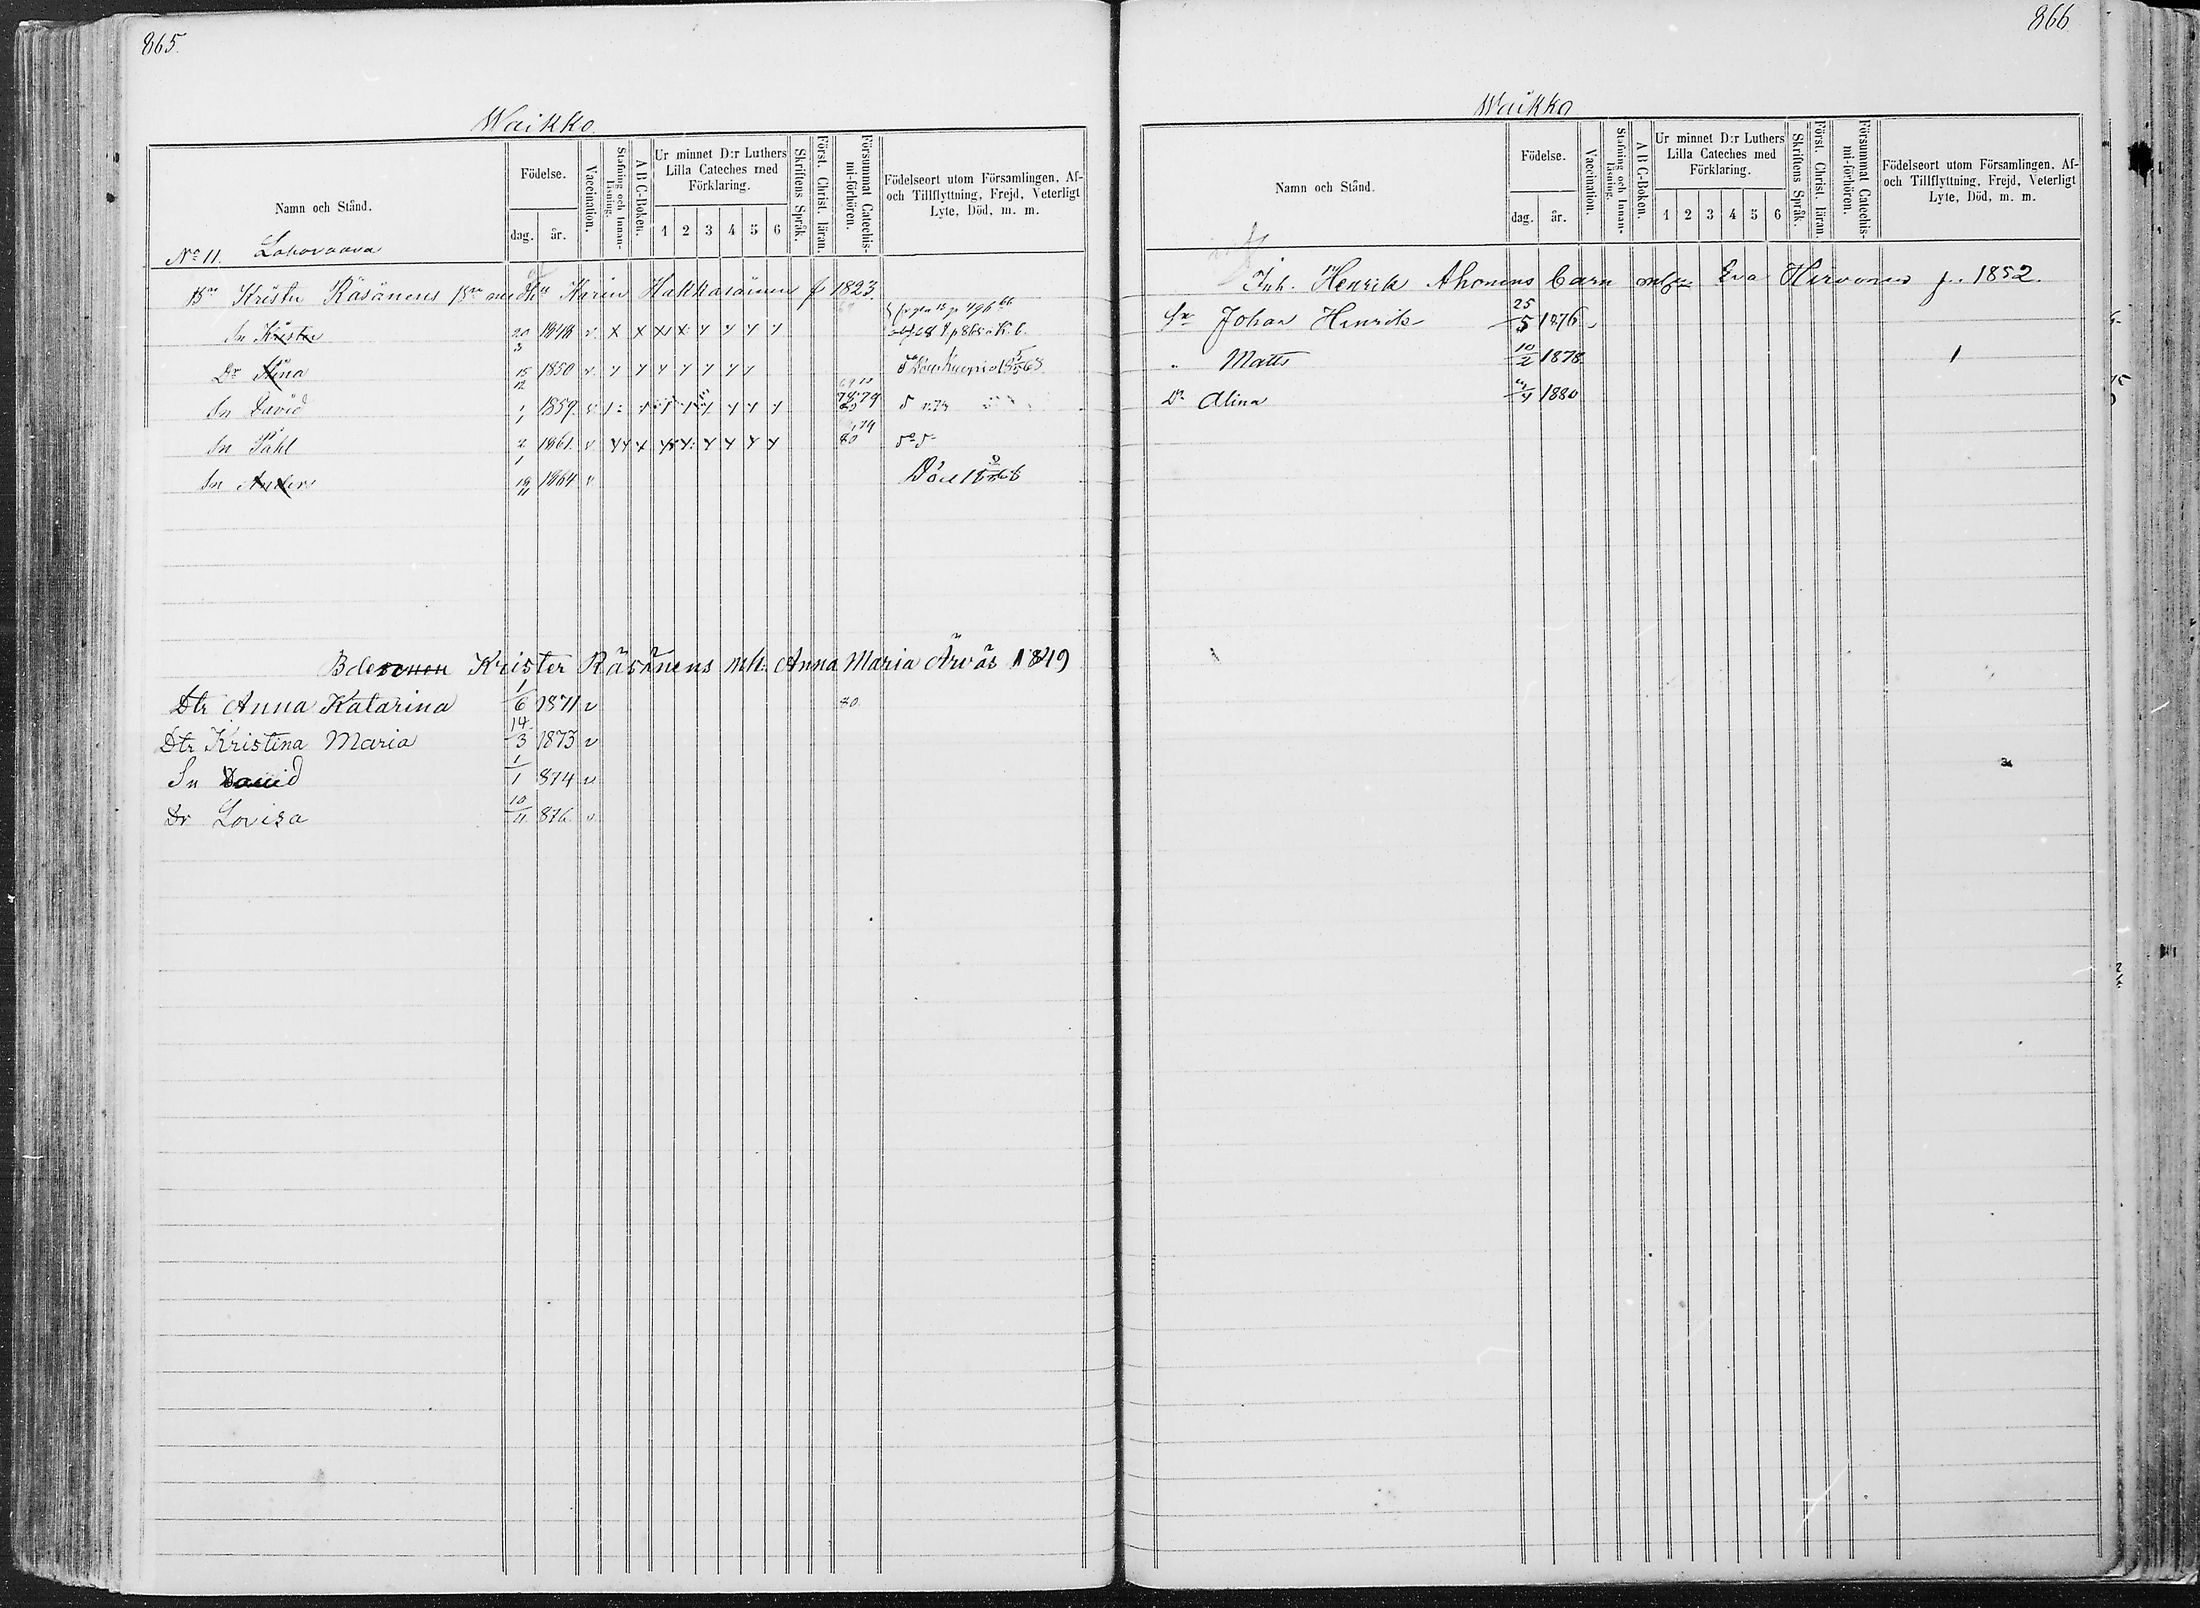 865.
Waikko
Namn och Stånd.
Födelse.
dag. år.
Vaccination.
Stafning och Innanläsning.
A B C-Boken.
Ur minnet D:r Luthers Lilla Cateches med Förklaring.
1 2 3 4 5 6
Skriftens Språk.
Först. Christ. läran.
Försummat Catechismi-förhören.
Födelseort utom Församlingen, Af- och Tillflyttning, Frejd, Veterligt Lyte, Död, m. m.
No 11.
Räsänens Karin Hakkarainen f 1823.
Sn Krister 20/3 1848 v x x
Dr Stina 15/12 1850 v
Sn David 1/1 1859 v
Sn Påhl 2/1 1861 v 80
Sn Anders 19/11 1864 v Död
Krister Räsänens m h: Anna Maria Ärväs 1849
Dtr Anna Katarina 1/6 1871 v 80.
Dtr Kristina Maria 14/3 1873 v
Sn David 1/1 874 v
Dr Lovisa 10/11 876 v
866
Waikko
Namn och Stånd.
Födelse.
dag. år.
Vaccination.
Stafning och Innanläsning.
A B C-Boken.
Ur minnet D:r Luthers Lilla Cateches med Förklaring.
1 2 3 4 5 6
Skriftens Språk.
Först. Christ. läran.
Försummat Catechismi-förhören.
Födelseort utom Församlingen, Af- och Tillflyttning, Frejd, Veterligt Lyte, Död, m. m.
Inh. Henrik Ahonens barn Eva Hirvonen f. 1852.
Sn Johan Henrik 25/5 1876
" Matts 10/2 1878
Dr Alina 1880